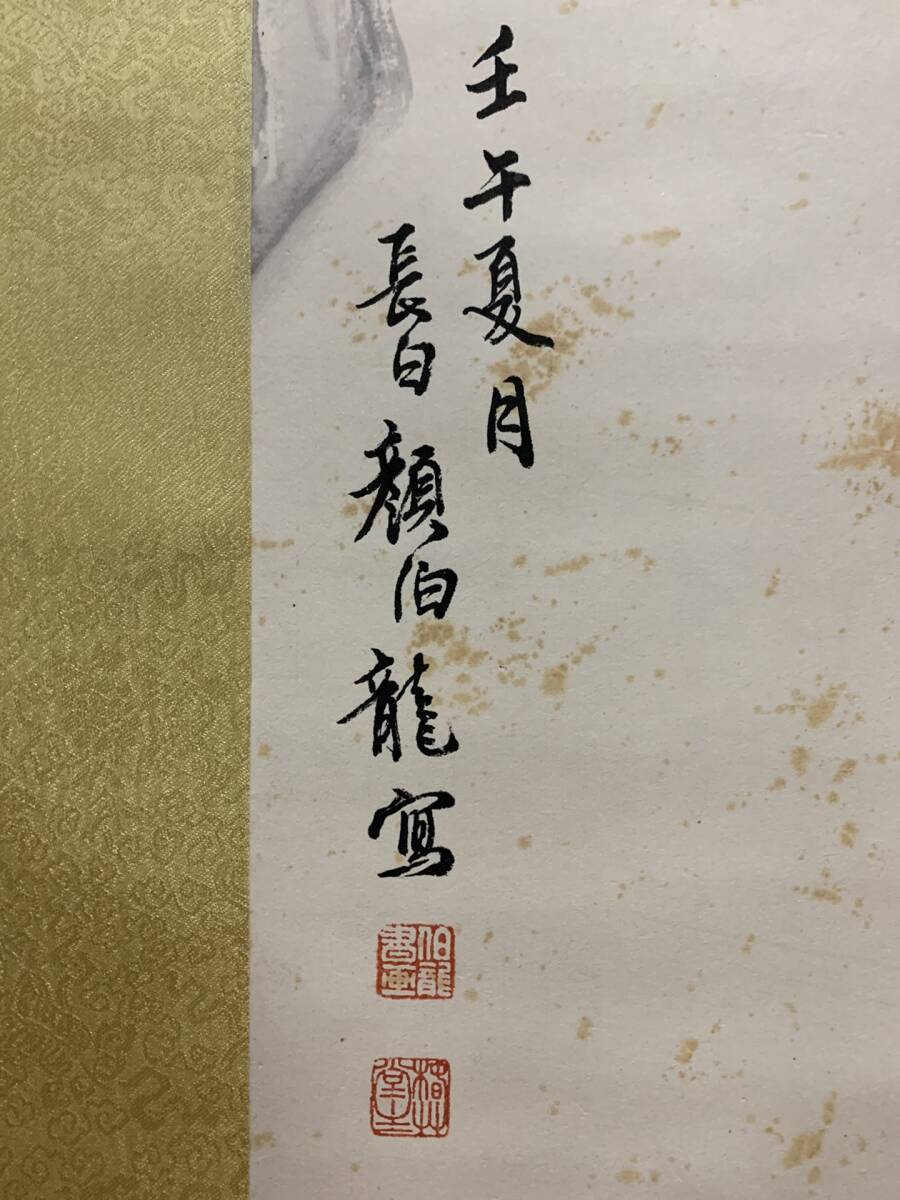 壬午夏月
長白顏伯龍寫
伯龍
書画